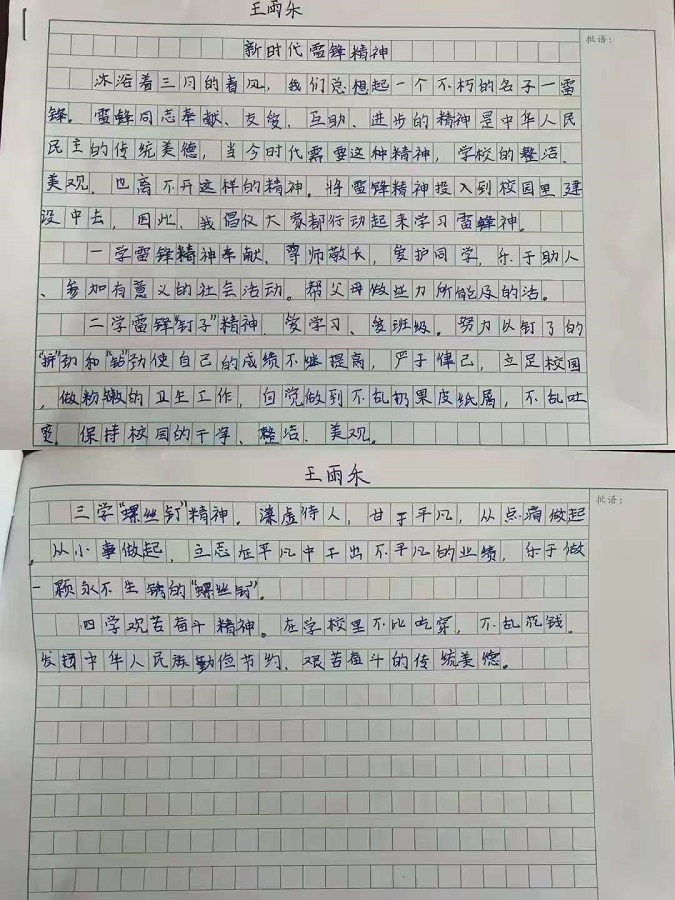 王雨乐
批语:
新时代雷锋精神
沐浴着三月的春风,我们总想起一个不朽的名子一雷
锋。雷锋同志奉献、友爱、互助、进步的精神是中华人民
民主的传统美德,当今时代需要这种精神,学校的整洁、
美观、也离不开这样的精神。将雷锋精神投入到校园里建
设中去,因此,我倡仪大家都行动起来学习雷锋神。
一学雷锋精神奉献、尊师敬长,爱护同学,乐于助人
、参加有意义的社会活动。帮父母做些力所能及的活。
二学雷锋“钉子”精神、爱学习、爱班级。努力以钉了的
“挤”劲和“钻”劲使自己的成绩不继提高,严于律己,立足校园
,做粉嫩的卫生工作,自觉做到不乱扔果皮纸屑,不乱吐
保持校园的干净、整洁、美观。
王雨乐
批语:
三学“螺丝钉”精神。谦虚待人,甘于平凡,从点滴做起
,从小事做起,立志在平凡中干出不平凡的业绩,乐于做
一颗永不生锈的“螺丝钉”。
四学观苦奋斗精神。在学校里不比吃穿,不乱花钱。
发扬中华人民族勤俭节约、艰苦奋斗的传统美德。